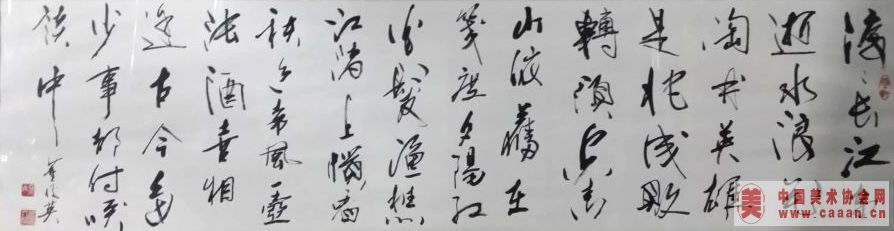 滚々长江东
逝水浪花
淘尽英雄
是非成败
轉頭空青
山依舊在
幾度夕陽红
白髮渔樵
江渚上惯看
秋月春風一壺
浊酒喜相
逢古今多
少事都付笑
談中
美
中国美术协会网
www.caaan.cn